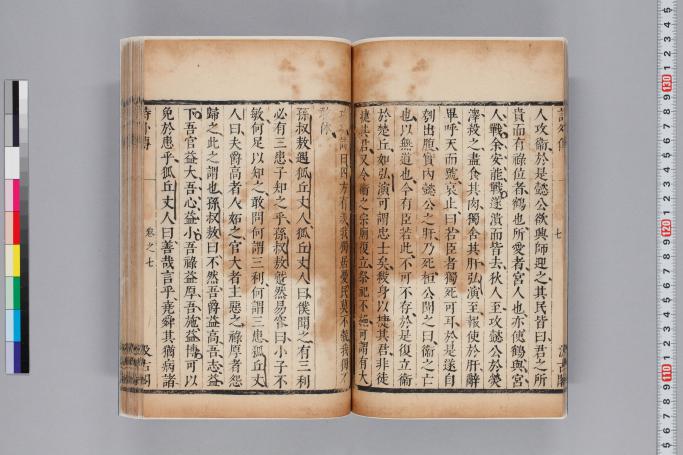 人攻衞於是懿公欲興師迎之其民皆曰君之所
貴而有祿位者鶴也所愛者宮人也亦使鶴與宮
人戰余安能戰遂潰而皆去狄人至攻懿公於熒
澤殺之盡食其肉獨舍其肝弘演至報使於肝辭
畢呼天而號哀止曰若臣者獨死可耳於是遂自
刳出腹實內懿公之肝乃死桓公聞之曰衞之亡
也以無道也今有臣若此不可不存於是復立衞
於楚丘如弘演可謂忠士矣殺身以捷其君非徒
捷其君又令衞之宗廟復立祭祀不絕可謂有大
功矣詩曰四方有羨我獨居憂民莫不穀我獨不
敢休
孫叔敖遇狐丘丈人狐丘丈人曰僕聞之有三利
必有三患子知之乎孫叔敖蹵然易容曰小子不
敏何足以知之敢問何謂三利何謂三患狐丘丈
人曰夫爵高者人妬之官大者主惡之祿厚者怨
歸之此之謂也孫叔敖曰不然吾爵益高吾志益
下吾官益大吾心益小吾祿益厚吾施益博可以
免於患乎狐丘丈人曰善哉言乎堯舜其猶病諸
詩外傳
卷之七
汲古閣
七
130
120
110